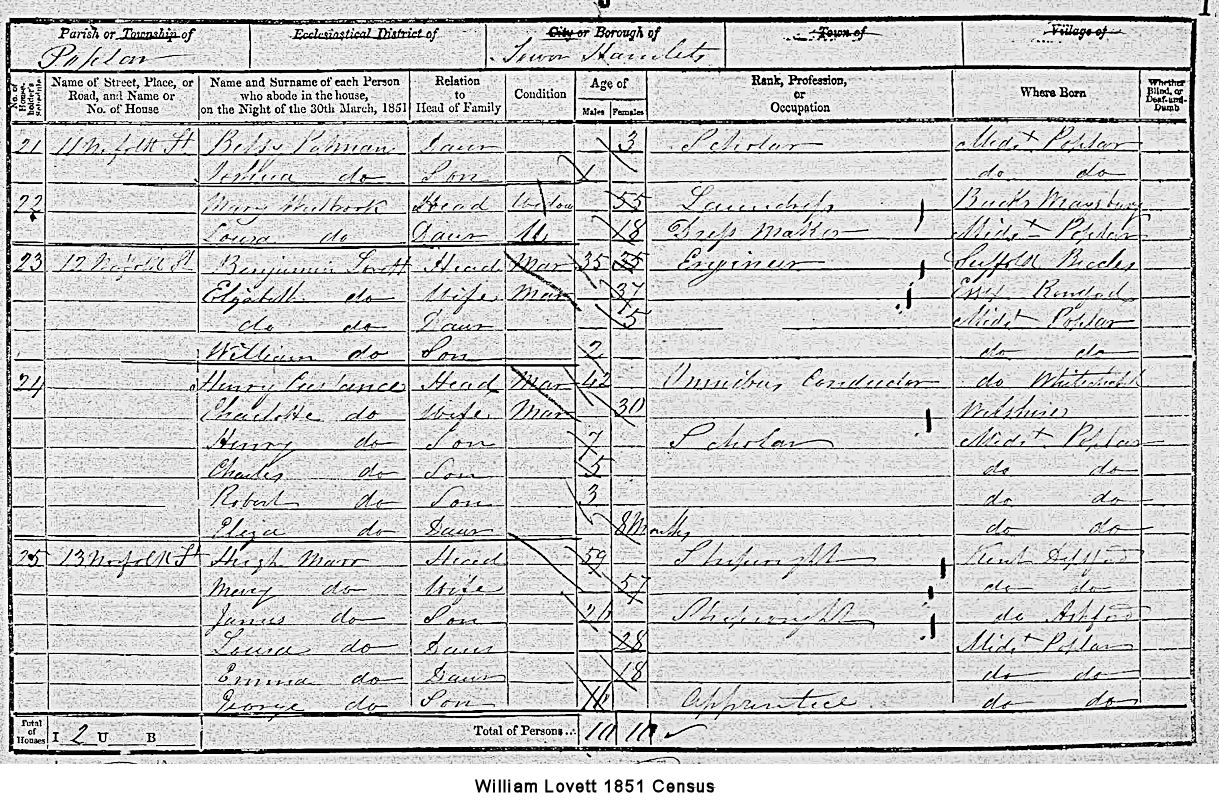 Parish or Township of Ecclesiastical District of City or Borough of Town of Village of
Poplar Tower Hamlets
No. of House-holder's Schedule Name of Street, Place, or Road, and Name or No. of House Name and Surname of each Person who abode in the house, on the Night of the 30th March, 1851 Relation to Head of Family Condition Age of Males Females Rank, Profession, or Occupation Where Born Whether Blind, or Deaf-and-Dumb
21 11 Norfolk St Betsy Daur 3 Scholar Midx Poplar
Joshua do Son do do
22 Mary Head Widow 55 Laundress Bucks
Louisa do Daur U 18 Dress Maker Midx Poplar
23 12 Norfolk St Benjamin Lovett Head Mar 35 Engineer Suffolk
Elizabeth do Wife Mar 37 Essex Romford
do do Daur 5 Midx Poplar
William do Son 2 do do
24 Henry Head Mar 42 Omnibus Conductor do
Charlotte do Wife Mar 30 Wiltshire
Henry do Son 7 Scholar Midx Poplar
Charles do Son 5 do do
Robert do Son 3 do do
Eliza do Daur 8 Months do do
25 13 Norfolk St Hugh Marr Head 59 Shipwright Kent Deptford
Mary do Wife 57 do do
James do Son Shipwright do Ashford
Louisa do Daur 28 Midx Poplar
Emma do Daur 18 do do
George do Son Apprentice do do
Total of Houses I 2 U B Total of Persons... 10 10
William Lovett 1851 Census